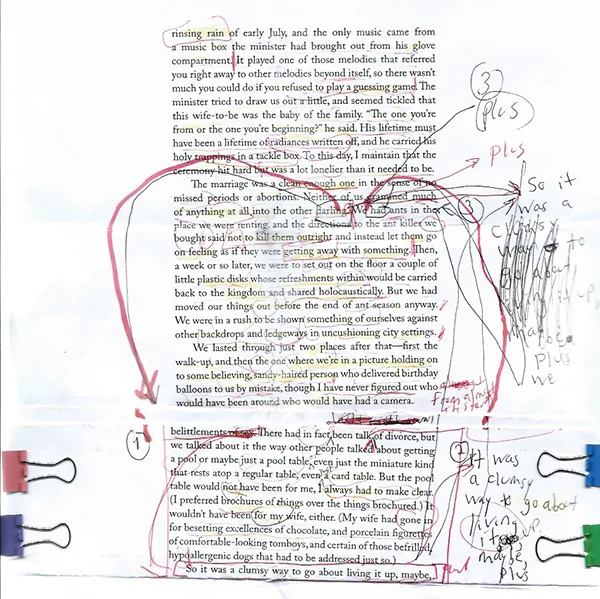 rinsing rain of early July, and the only music came from
a music box the minister had brought out from his glove
compartment. It played one of those melodies that referred
you right away to other melodies beyond itself, so there wasn't
much you could do if you refused to play a guessing game. The
minister tried to draw us out a little, and seemed tickled that
this wife-to-be was the baby of the family. "The one you're
from or the one you're beginning?" he said. His lifetime must
have been a lifetime of radiances written off, and he carried his
holy trappings in a tackle box. To this day, I maintain that the
ceremony hit hard but was a lot lonelier than it needed to be.
The marriage was a clean enough one in the sense of no
missed periods or abortions. Neither of us crammed much
of anything at all into the other darling. We had ants in the
place we were renting, and the directions to the ant killer we
bought said not to kill them outright and instead let them go
on feeling as if they were getting away with something. Then,
a week or so later, we were to set out on the floor a couple of
little plastic disks whose refreshments within would be carried
back to the kingdom and shared holocaustically. But we had
moved our things out before the end of ant season anyway.
We were in a rush to be shown something of ourselves against
other backdrops and ledgeways in uncushioning city settings.
We lasted through just two places after that—first the
walk-up, and then the one where we're in a picture holding on
to some believing, sandy-haired person who delivered birthday
balloons to us by mistake, though I have never figured out who
would have been around who would have had a camera.
belittlements of sex. There had in fact been talk of divorce, but
we talked about it the way other people talked about getting
a pool or maybe just a pool table, even just the miniature kind
that rests atop a regular table, even a card table. But the pool
table would not have been for me, I always had to make clear.
(I preferred brochures of things over the things brochured.) It
wouldn't have been for my wife, either. (My wife had gone in
for besetting excellences of chocolate, and porcelain figurines
of comfortable-looking tomboys, and certain of those befrilled,
hypoallergenic dogs that had to be addressed just so.)
So it was a clumsy way to go about living it up, maybe,
3
plus
plus
3
So it
was a
clumsy
way to
go about
maybe
plus
we
1
2
It was
a clumsy
way to go about
living
it up,
maybe,
plus